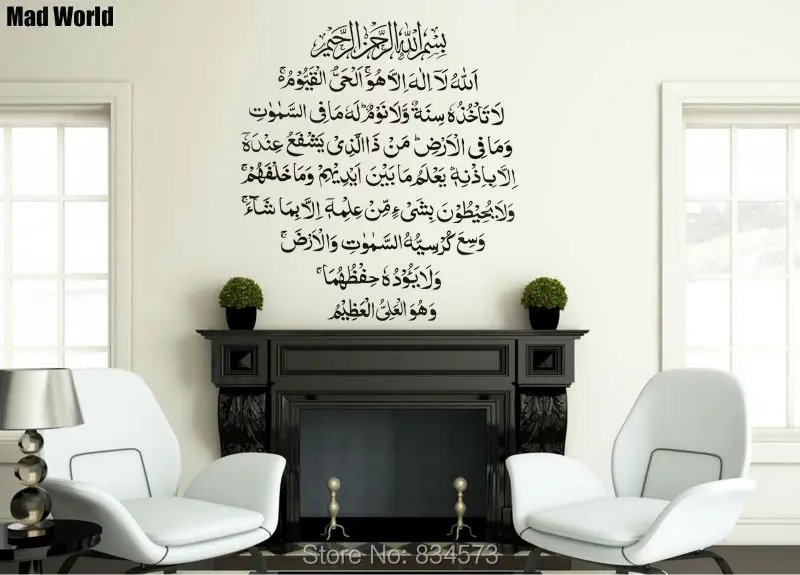 Mad World
بِسْمِ اللهِ الرَّحْمٰنِ الرَّحِيْمِ
اَللهُ لَآ اِلٰهَ اِلَّا هُوَۚ اَلْحَىُّ الْقَيُّوْمُ ۚ
لَا تَاْخُذُهٗ سِنَةٌ وَّلَا نَوْمٌ ؕ لَهٗ مَا فِى السَّمٰوٰتِ
وَمَا فِى الْاَرْضِ ؕ مَنْ ذَا الَّذِىْ يَشْفَعُ عِنْدَهٗٓ
اِلَّا بِاِذْنِهٖ ؕ يَعْلَمُ مَا بَيْنَ اَيْدِيْهِمْ وَمَا خَلْفَهُمْ ۚ
وَلَا يُحِيْطُوْنَ بِشَىْءٍ مِّنْ عِلْمِهٖٓ اِلَّا بِمَا شَآءَ ۚ
وَسِعَ كُرْسِيُّهُ السَّمٰوٰتِ وَالْاَرْضَ ۚ
وَلَا يَـُٔوْدُهٗ حِفْظُهُمَا ۚ
وَهُوَ الْعَلِىُّ الْعَظِيْمُ
Store No: 834573